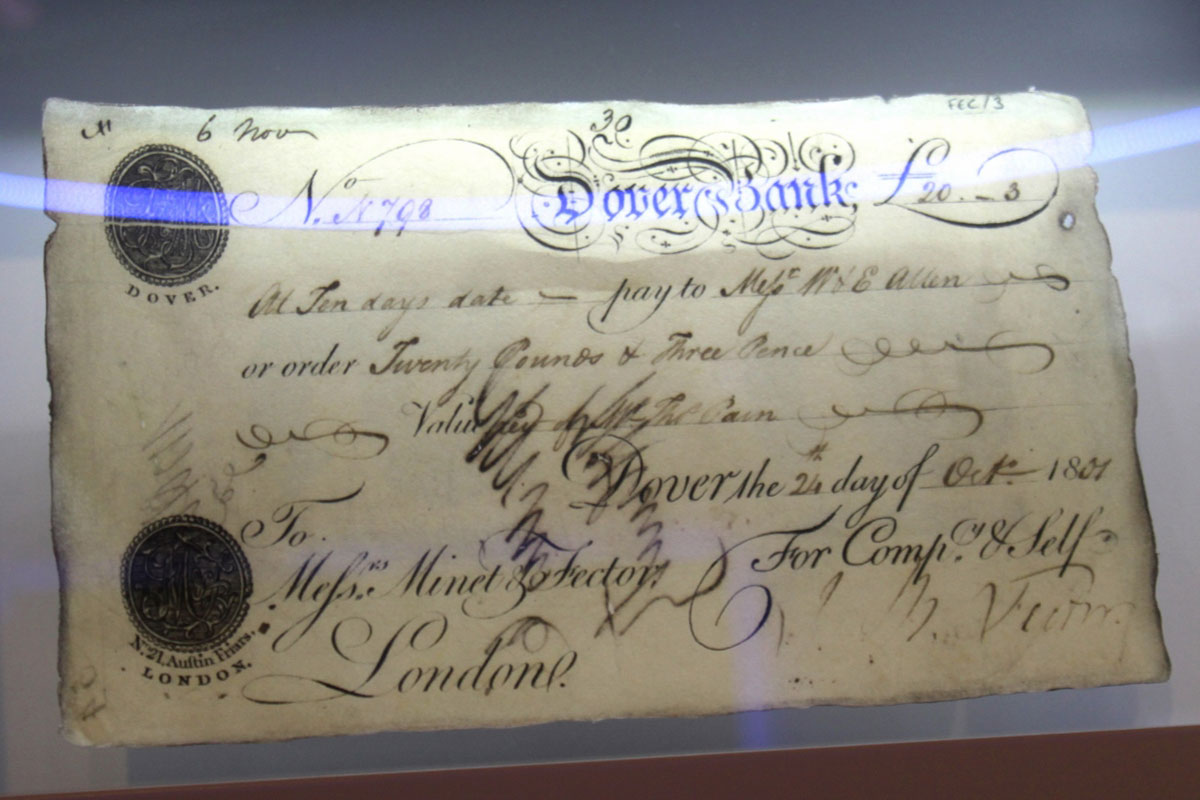 FEC/3
6 Nov
30
No. N 798 Dover Bank, £20.-3
DOVER.
At Ten days date - pay to Messrs W & E Allen
or order Twenty Pounds & Three Pence
Value Thos Pain
Dover the 24th day of Octr 1801
To
Messrs. Minet & Fector,
For Compy. & Self
No. 21, Austin Friars.
LONDON.
London.